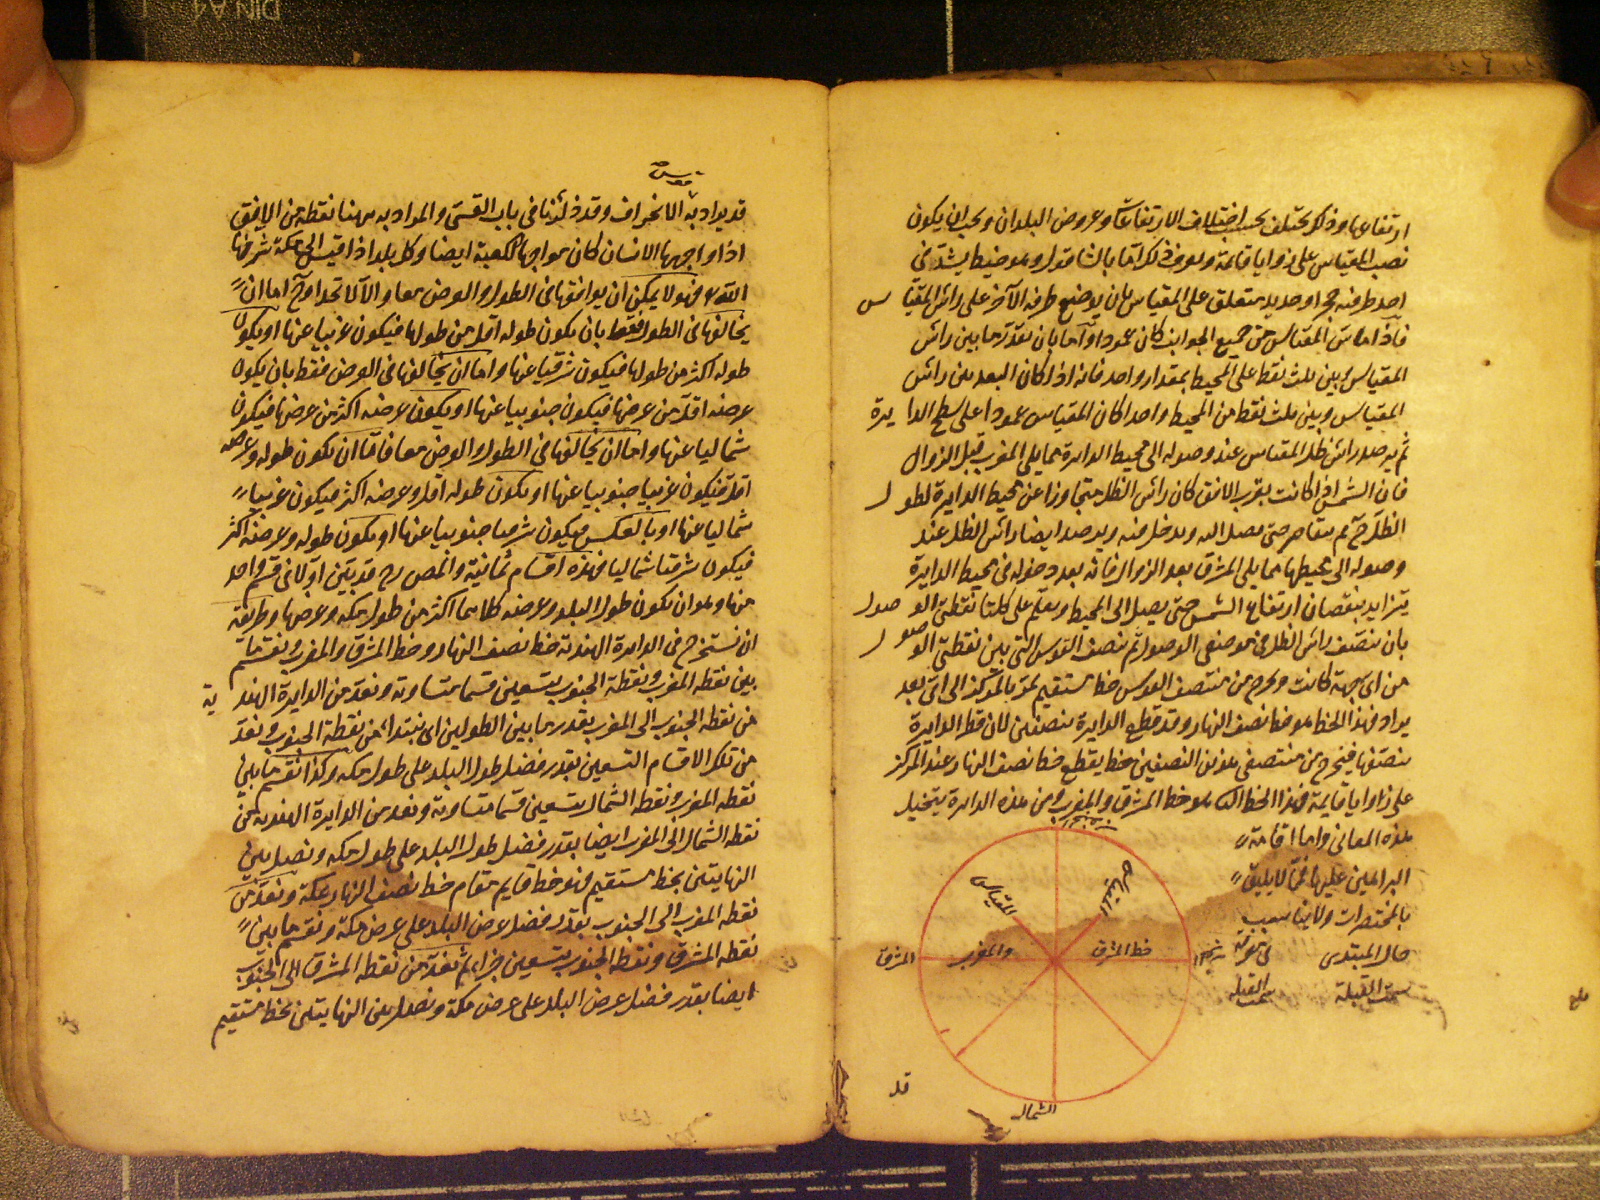 ارتفاعها وذلك يختلف بحسب اختلاف الارتفاعات وعروض البلدان ويجب ان يكون
نصب المقياس على زوايا قائمة ويعرف ذلك اما بالشاقول وهو خيط يشد في
احد طرفيه حجر او حديد متعلق على المقياس بان يوضع طرفه الآخر على رأس المقياس
فاذا ماس المقياس من جميع الجوانب كان عمودا او اما بان تقدر ما بين رأس
المقياس وبين ثلث نقط على المحيط بمقدار واحد فانه اذا كان البعد بين رأس
المقياس وبين ثلث نقط من المحيط واحدا كان المقياس عمودا على سطح الدايرة
ثم يرصد رأس ظل المقياس عند وصوله الى محيط الدايرة مما يلي المغرب قبل الزوال
فان الشمس اذا كانت بقرب الافق كان رأس الظل متجاوزا عن محيط الدايرة لطول
الظل ح ثم يتقاصر حتى يصل اليه ويدخل فيه ويرصد ايضا رأس الظل عند
وصوله الى محيطها مما يلي المشرق بعد الزوال فانه بعد دخوله في محيط الدايرة
يتزايد بنقصان ارتفاع الشمس حتى يصل الى المحيط ويعلم على كلتا نقطتي الوصول
بان ينصف رأس الظل في موضعي الوصول ثم ينصف القوس التي بين نقطتي الوصول
من اي جهة كانت ويخرج من منتصف القوس خط مستقيم يمر بالمركز الى اي بعد
يراد فهذا الخط هو خط نصف النهار وقد قطع الدايرة بنصفين لان قطر الدايرة
ينصفها فيخرج من منتصفي هذين النصفين خط يقطع خط نصف النهار عند المركز
على زاوايا قايمة فهذا الخط هو خط المشرق والمغرب ومن هذه الدايرة يتخيل
هذه المعاني واما اقامة
البراهين عليها فمما لا يليق
بالمختصرات ولا يناسب
حال المبتدى في معرفة
سمت القبلة سمت القبلة
المقياس
خط المشرق
والمغرب
المشرق
الشمال
قد
قوس
قد يراد به الانحراف وقد ذكرنا في باب القسي والمراد به ههنا نقطة من الافق
اذا واجهها الانسان كان مواجها للكعبة ايضا وكل بلد اذا قيس الى مكة شرفها
الله تع فهو لا يمكن ان يوافقها في الطول والعرض معا والا لاتحدا وح اما ان
يخالفها في الطول فقط بان يكون طوله اقل من طولها فيكون غربيا عنها او يكون
طوله اكثر من طولها فيكون شرقيا عنها واما ان يخالفها في العرض فقط بان يكون
عرضه اقل من عرضها فيكون جنوبيا عنها او يكون عرضه اكثر من عرضها فيكون
شماليا عنها واما ان يخالفها في الطول والعرض معا فاما ان يكون طوله وعرضه
اقل فيكون غربيا جنوبيا عنها او يكون طوله اقل وعرضه اكثر فيكون غربيا
شماليا عنها او بالعكس فيكون شرقيا جنوبيا عنها او يكون طوله وعرضه اكثر
فيكون شرقيا شماليا فهذه اقسام ثمانية والمص رح قد بين اولا في قسم واحد
منها وهو ان يكون طول البلد وعرضه كلاهما اكثر من طول مكة وعرضها وطريقه
ان تستخرج في الدايرة الهندية خط نصف النهار وخط المشرق والمغرب وتقسم ما
بين نقطة المغرب ونقطة الجنوب بتسعين قسما متساوية وتعد من الدايرة الهندية
من نقطة الجنوب الى المغرب بقدر ما بين الطولين اي تبتدأ من نقطة الجنوب وتعد
من تلك الاقسام التسعين بقدر فضل طول البلد على طول مكة وكذا تقسم ما بين
نقطة المغرب ونقطة الشمال بتسعين قسما متساوية وتعد من الدايرة الهندية من
نقطة الشمال الى المغرب ايضا بقدر فضل طول البلد على طول مكة وتصل بين
النهايتين بخط مستقيم فهو خط قايم مقام خط نصف النهار بمكة وتعد من
نقطة المغرب الى الجنوب بقدر فضل عرض البلد على عرض مكة وتقسم ما بين
نقطة المشرق ونقطة الجنوب بتسعين جزأ ثم تعد من نقطة المشرق الى الجنوب
ايضا بقدر فضل عرض البلد على عرض مكة وتصل بين النهايتين بخط مستقيم